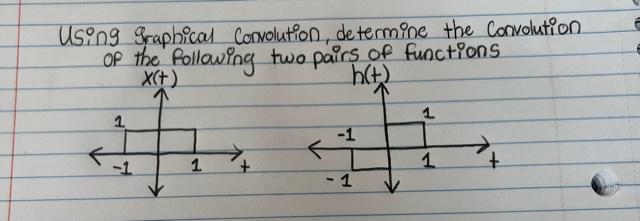 Using graphical convolution, determine the convolution
of the following two pairs of functions
x(t) h(t)
1 1
-1
-1 1 t 1 t
-1